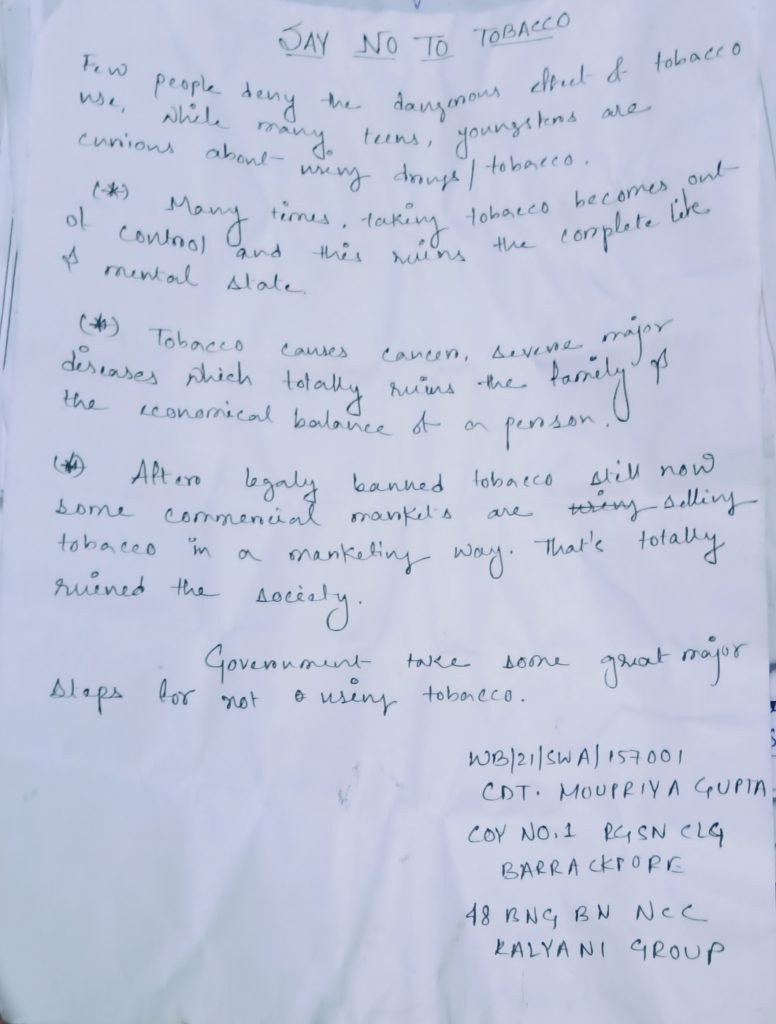 SAY NO TO TOBACCO
Few people deny the dangerous effect of tobacco
use, while many teens, youngsters are
curious about using drugs / tobacco.
(*) Many times, taking tobacco becomes out
of control and this ruins the complete life
& mental state.
(*) Tobacco causes cancer, severe major
diseases which totally ruins the family &
the economical balance of a person.
(*) After legaly banned tobacco still now
some commercial markets are using selling
tobacco in a marketing way. That's totally
ruined the society.
Government take some great major
steps for not using tobacco.
WB/21/SWA/157001
CDT. MOUPRIYA GUPTA
COY NO.1 RGSN CLG
BARRACKPORE
48 BNG BN NCC
KALYANI GROUP